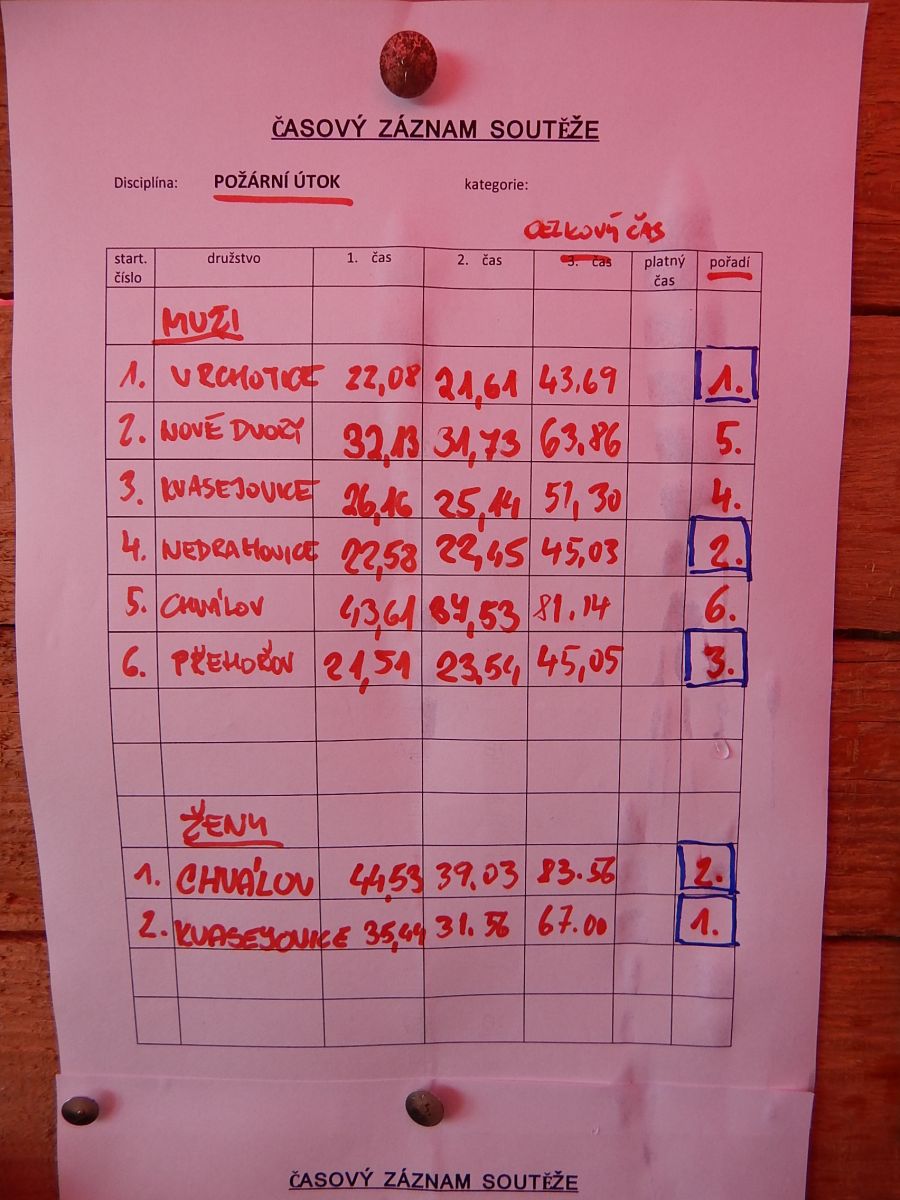 ČASOVÝ ZÁZNAM SOUTĚŽE
Disciplína: POŽÁRNÍ ÚTOK kategorie:
CELKOVÝ ČAS
start. číslo družstvo 1. čas 2. čas 3. čas platný čas pořadí
MUŽI
1. VRCHOTICE 22,08 21,61 43.69 1.
2. NOVÉ DVORY 32,13 31,73 63,86 5.
3. KVASEJOVICE 26,16 25,14 51,30 4.
4. NEDRAHOVICE 22,58 22,45 45,03 2.
5. CHVÁLOV 43,61 37,53 81.14 6.
6. PŘEHOŘOV 21,51 23,54 45,05 3.
ŽENY
1. CHVÁLOV 44,53 39,03 83.56 2.
2. KVASEJOVICE 35,44 31.56 67.00 1.
ČASOVÝ ZÁZNAM SOUTĚŽE